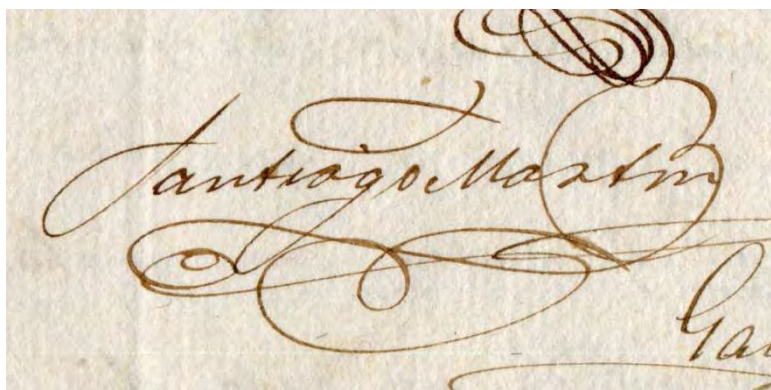 Santiago Martin